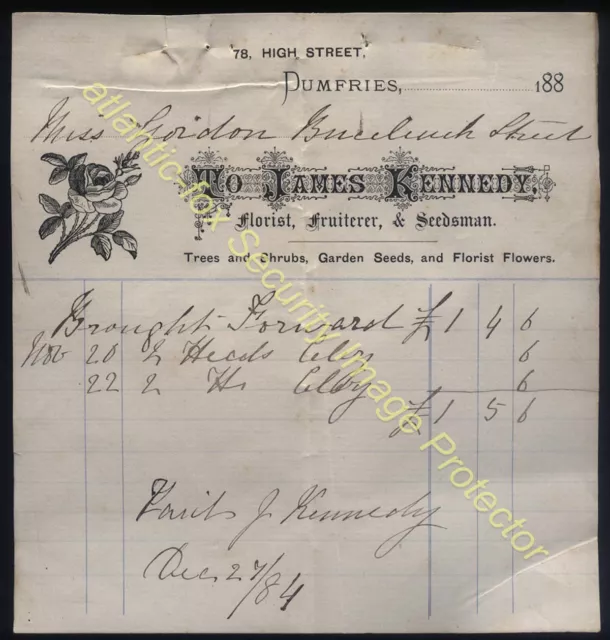 78, HIGH STREET,
DUMFRIES, 188
Miss Gordon Buccleuch Street
TO JAMES KENNEDY,
Florist, Fruiterer, & Seedsman.
Trees and Shrubs, Garden Seeds, and Florist Flowers.
Brought Forward £ 1 4 6
Nov 20 2 Heads Celby 6
22 2 H Celby 6
£ 1 5 6
J Kennedy
Dec 27/84
atlantic-fox Security Image Protector